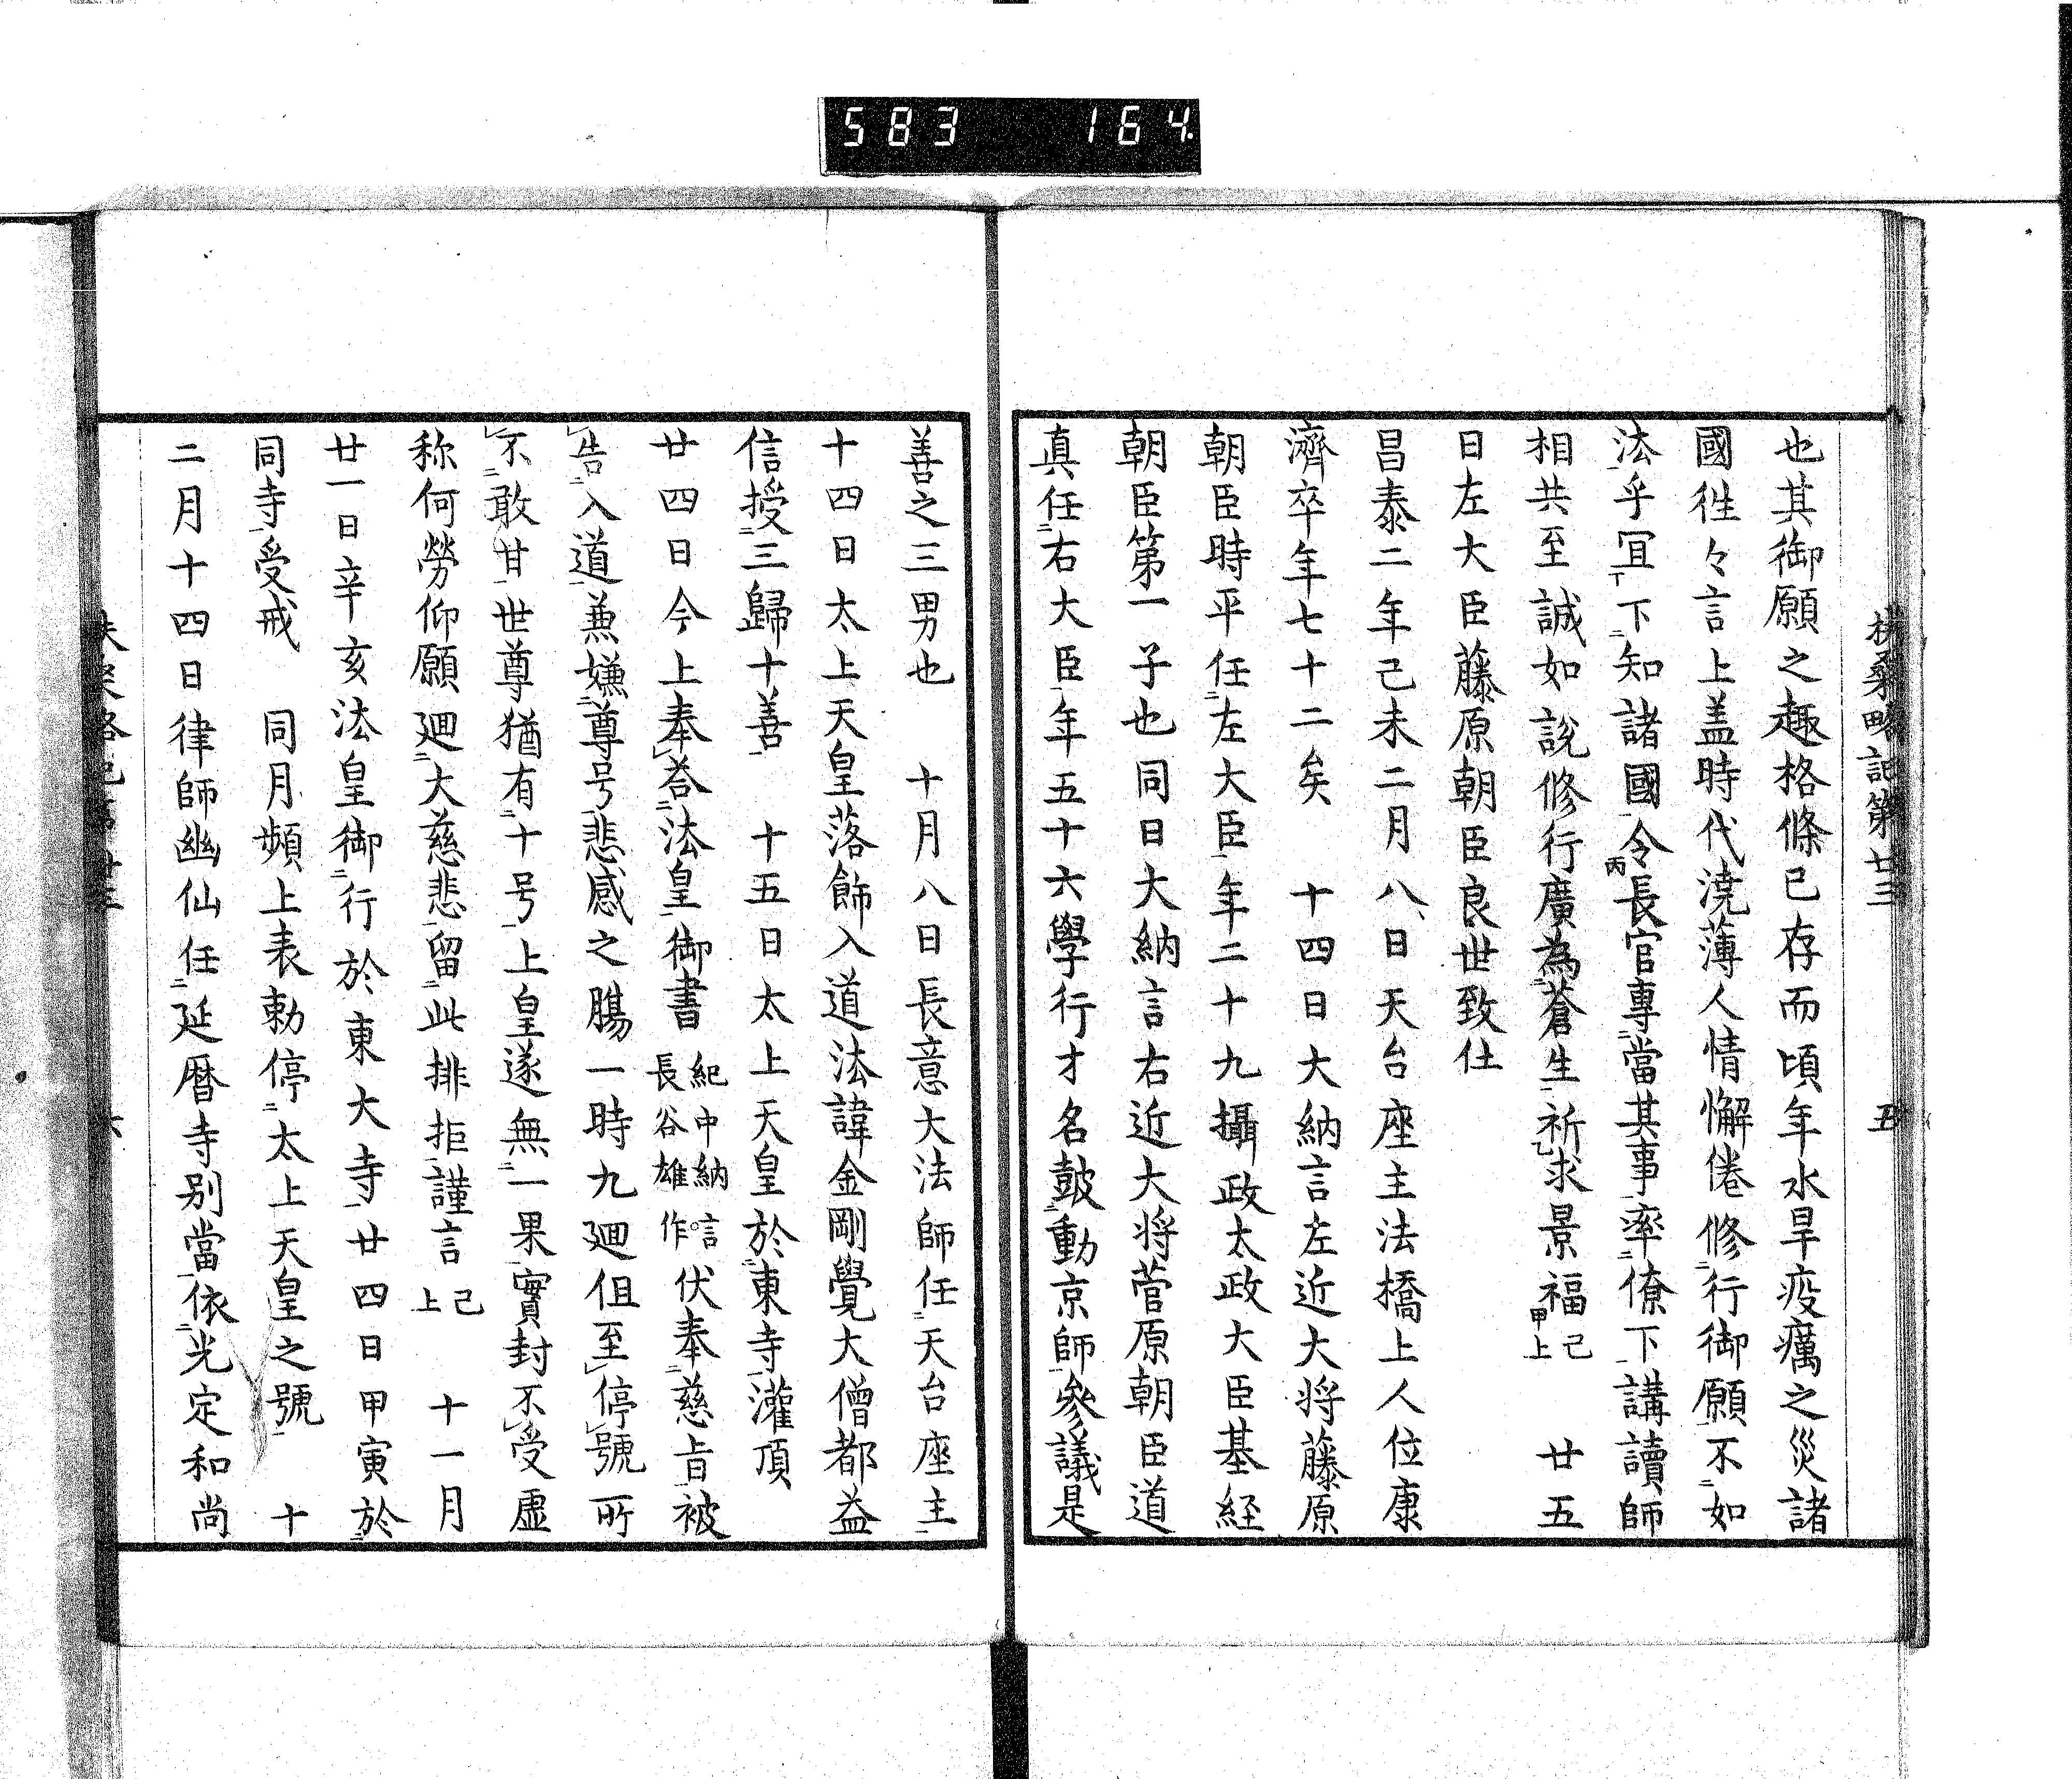 583 164
扶桑略記第廿三 五
也其御願之趣格條已存而頃年水旱疫癘之災諸
國徃々言上盖時代澆薄人情懈倦修行御願不如
法乎冝下知諸國令長官専當其事率僚下講讀師
相共至誠如説修行廣為蒼生祈求景福已上 廿五
日左大臣藤原朝臣良世致仕
昌泰二年己未二月八日天台座主法橋上人位康
濟卒年七十二矣 十四日大納言左近大将藤原
朝臣時平任左大臣年二十九攝政太政大臣基経
朝臣第一子也同日大納言右近大将菅原朝臣道
真任右大臣年五十六學行才名鼓動京師參議是
善之三男也 十月八日長意大法師任天台座主
十四日太上天皇落餝入道法諱金剛覺大僧都益
信授三歸十善 十五日太上天皇於東寺灌頂
廿四日今上奉荅法皇御書紀中納言長谷雄作伏奉慈旨被
告入道兼嫌尊号悲感之腸一時九廻但至停號所
不敢甘世尊猶有十号上皇遂無一果實封不受虚
称何勞仰願廻大慈悲留此排拒謹言已上 十一月
廿一日辛亥法皇御行於東大寺廿四日甲寅於
同寺受戒 同月頻上表勅停太上天皇之號 十
二月十四日律師幽仙任延暦寺別當依光定和尚